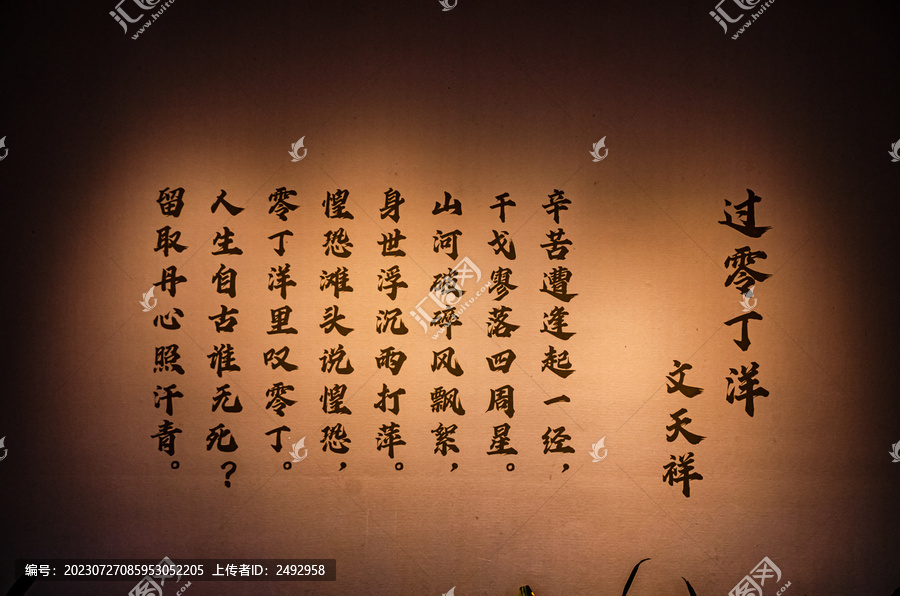 过零丁洋
文天祥
辛苦遭逢起一经，
干戈寥落四周星。
山河破碎风飘絮，
身世浮沉雨打萍。
惶恐滩头说惶恐，
零丁洋里叹零丁。
人生自古谁无死？
留取丹心照汗青。
编号：20230727085953052205 上传者ID：2492958